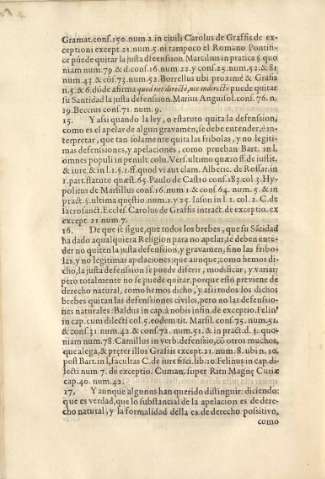 Gramat. conf. 150. num. 2. in ciuili Carolus de Graffis de ex-
ceptioni except. 21. num. 5. ni tampoco el Romano Pontifi-
ce puede quitar la justa defension. Marculus in pratica §. quo
niam num. 79. & d. conf. 16. num. 22. y conf. 25. num. 52. & 81
num. 43 & cōs. 73. num. 52. Borrellus ubi proximé & Grafia
n. 5. & 6. dōde afirma quod nec directè, nec indirectè puede quitar
su Santidad la justa defension. Marius Anguisol. conf. 76. n.
19. Beccius conf. 71. num. 9.
15. Y assi quando la ley, o estatuto quita la defension,
como es el apelar de algun gravamen, se debe entender, è in-
terpretar, que tan solamente quita las fribolas, y no legiti-
mas defensiones, y apelaciones, como prueban Bart. in l.
omnes populi in penult. colu. Vers. ultimo quæro ff. de iustit.
& iure. & in l. 1. §. 1. ff. quod vi aut clam. Alberic. de Rosfar in
1. part. statute quæst. 65. Paulo de Castro conf. 183. col 3. Hy-
politus de Marsilius conf. 16. num 1 & conf 64. num. 5 & in
pract. §. ultima questio. num. 2. y 25. Iason in l. 1. col. 2. C. de
sacrosanct. Eccles. Carolus de Graffis in tract. de exceptio. ex
except. 21 num 7.
16. De que se sigue, que todos los brebes, que su Sātidad
ha dado a qualquiera Religion para no apelar, se deben enten-
der no quiten la justa defension, y gravamen, sino las fribo-
las, y no legitimas apelaciones: que aunque, como hemos di-
cho, la justa defension se puede diferir, modificar, y variar;
pero totalmente no se puede quitar, porque esto proviene de
derecho natural, como hemos dicho, y assi todos los dichos
brebes quitan las defensiones civiles, pero no las defensio-
nes naturales: Baldus in cap. à nobis in fin. de exceptio. Felinus
in cap. cum dilecti col. 5. eodem tit. Marsil. conf. 75. num. 51.
& conf. 31. num. 42 & conf. 72. num. 51. & in pract. d. §. quo-
niam num. 78. Camillus in verb. defensio, cō otros muchos,
que alega, & præter illos Grafiis except. 21. num. 8. ubi n. 10.
post Bart. in l. facultas C. de iure fisci. lib. 10. Felinus in cap. di-
lecti num 7. de exceptio. Cuman. super Ritu Magnę Curiæ
cap. 40. num. 42.
17. Y aunque algunos han querido distinguir: diciendo:
que es verdad, que lo substancial de la apelacion es de dere-
cho natural, y la formalidad della es de derecho positivo,
como